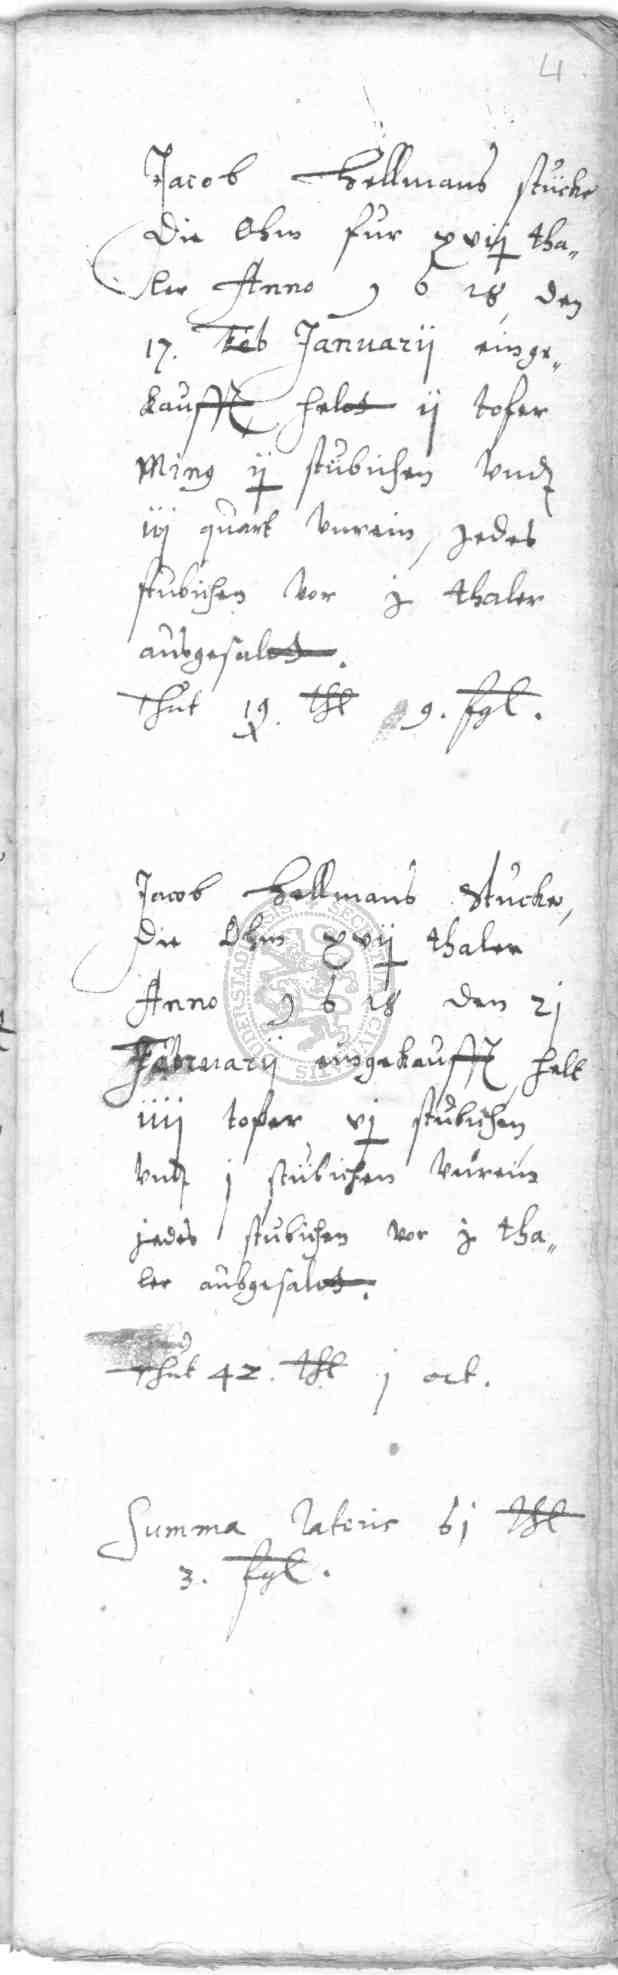 4
Jacob Hellmans stücke
die Ohm für xviij tha„
ler Anno 1 6 28, den
17. Feb Januarij einge„
kaufft, heldt ij tofer
Ming ij stübichen Vnd
iij quart Vnrein, jedes
stübichen vor j thaler
ausgesaldt.
Thut 19. thl 9. fgl.
Jacob Hellmans Stucke,
die Ohm xvij thaler
Anno 1 6 28 den 2j
Februarij eingekaufft, helt
iiij tofer vj stübichen
vnd j stübichen Vnrein
jedes stübichen vor j tha„
ler ausgesaldt.
Thut 42. thl j ort.
Summa lateris 6j thl
3. fgl.